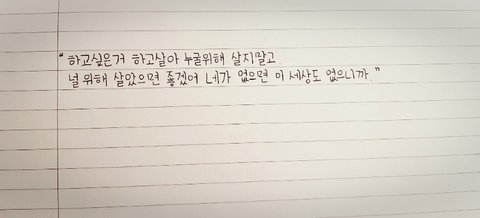 “ 하고싶은거 하고살아 누굴위해 살지말고
널 위해 살았으면 좋겠어 네가 없으면 이 세상도 없으니까 ”